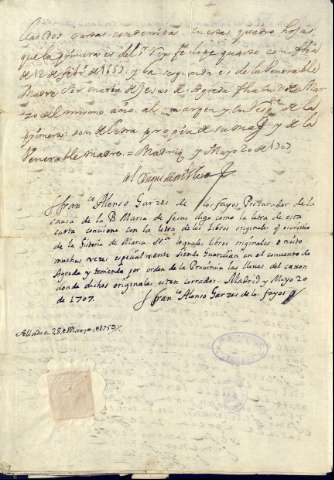 Las dos cartas contenidas en estas quatro hojas,
que la primera es del Sr Rey Phe lipe quarto con fha
de 12 de febo de 1657 y la segunda es de la Venerable
Madre Sor maria de Jesus de Agreda fha de Mar
zo del mismo año, al margen y en los de la
primera son de letra propia de su mag y de la
Venerable madre = Madrid y Mayo 20 de 1707
el Duque
fran.co Alonso Garzes de los fayos Procurador de la
causa de la V. Maria de Jesus digo como la letra de esta
carta conviene con la letra de los libros originales q escrivio
de la Historia de Maria SS.ma los quales libros originales e visto
muchas vezes especialmente siendo Guardian en el convento de
Agreda y teniendo por orden de la Provincia las llaves del caxon
donde dichos originales estan cerrados. Madrid y Mayo 20
de 1707.
fran.co Alonso Garzes de los fayos
Madrid 28 de Marzo de